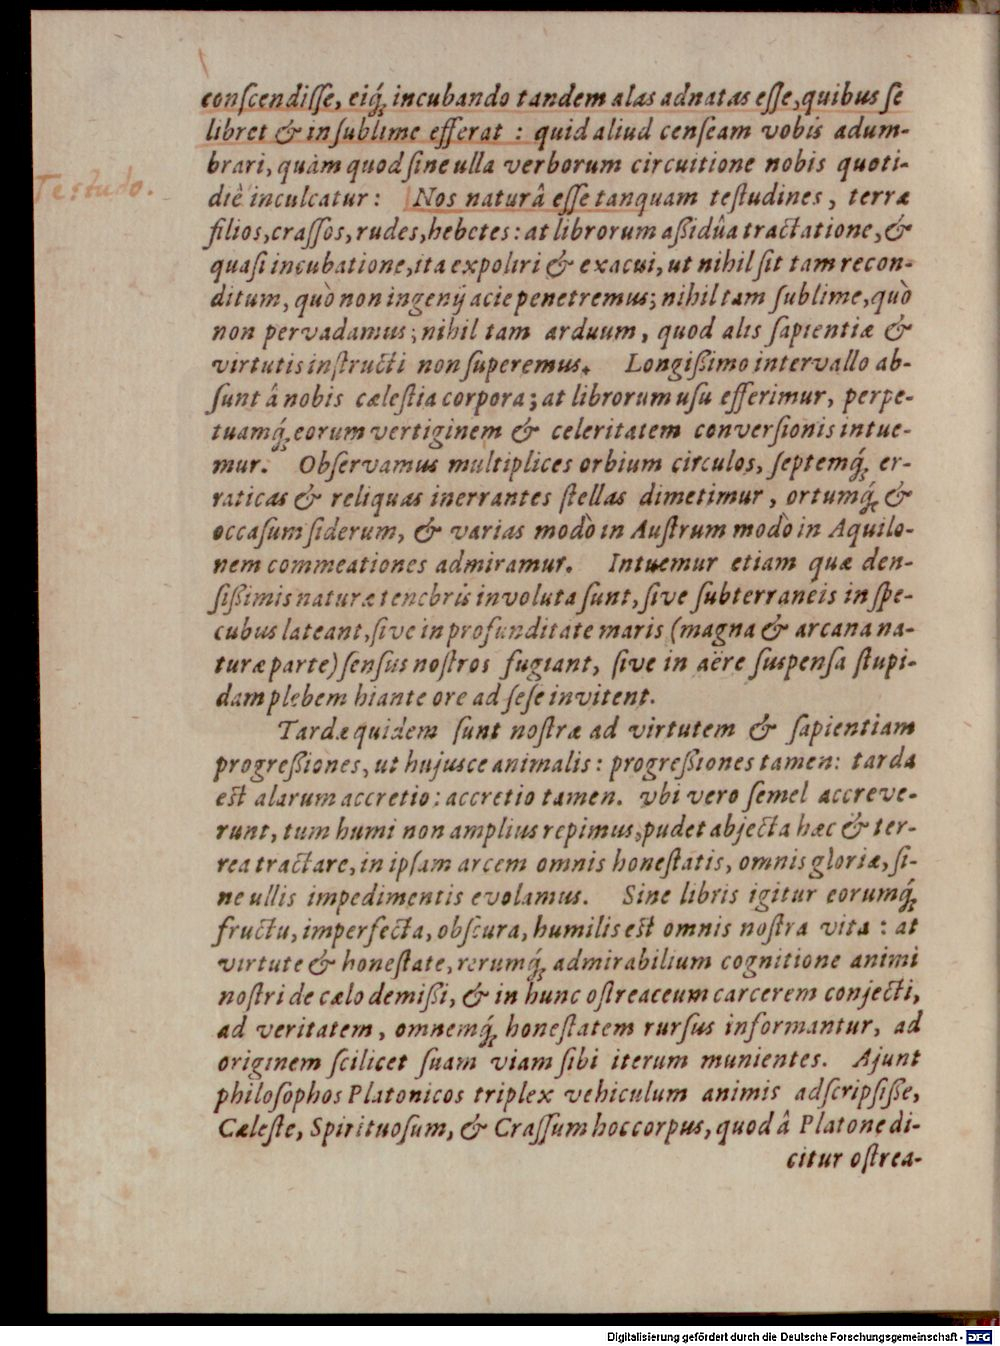 conſcendiſſe, eiq́; incubando tandem alas adnatas eſſe, quibus ſe
libret & in ſublime efferat : quid aliud cenſeam vobis adum-
brari, quàm quod ſine ulla verborum circuitione nobis quoti-
Testudo.
diè inculcatur : Nos naturâ eſſe tanquam teſtudines, terræ
filios, craſſos, rudes, hebetes : at librorum aßiduâ tractatione, &
quaſi incubatione, ita expoliri & exacui, ut nihil ſit tam recon-
ditum, quò non ingenij acie penetremus; nihil tam ſublime, quò
non pervadamus; nihil tam arduum, quod alis ſapientiæ &
virtutis inſtructi non ſuperemus. Longißimo intervallo ab-
ſunt â nobis cæleſtia corpora; at librorum uſu efferimur, perpe-
tuamq́; eorum vertiginem & celeritatem converſionis intue-
mur. Obſervamus multiplices orbium circulos, ſeptemq́; er-
raticas & reliquas inerrantes ſtellas dimetimur, ortumq́; &
occaſum ſiderum, & varias modò in Auſtrum modò in Aquilo-
nem commeationes admiramur. Intuemur etiam quæ den-
ſißimis naturæ tenebris involuta ſunt, ſive ſubterraneis in ſpe-
cubus lateant, ſive in profunditate maris (magna & arcana na-
turæ parte) ſenſus noſtros fugiant, ſive in aëre ſuspenſa ſtupi-
dam plebem hiante ore ad ſeſe invitent.
Tardæ quidem ſunt noſtræ ad virtutem & ſapientiam
progreßiones, ut hujusce animalis : progreßiones tamen : tarda
est alarum accretio : accretio tamen. vbi vero ſemel accreve-
runt, tum humi non amplius repimus, pudet abjecta hæc & ter-
rea tractare, in ipſam arcem omnis honeſtatis, omnis gloriæ, ſi-
ne ullis impedimentis evolamus. Sine libris igitur eorumq́;
fructu, imperfecta, obſcura, humilis est omnis noſtra vita : at
virtute & honeſtate, rerumq́; admirabilium cognitione animi
noſtri de cælo demißi, & in hunc oſtreaceum carcerem conjecti,
ad veritatem, omnemq́; honeſtatem rurſus informantur, ad
originem ſcilicet ſuam viam ſibi iterum munientes. Ajunt
philoſophos Platonicos triplex vehiculum animis adſcripſiſſe,
Cæleſte, Spirituoſum, & Craſſum hoc corpus, quod â Platone di-
citur oſtrea-
Digitalisierung gefördert durch die Deutsche Forschungsgemeinschaft - DFG